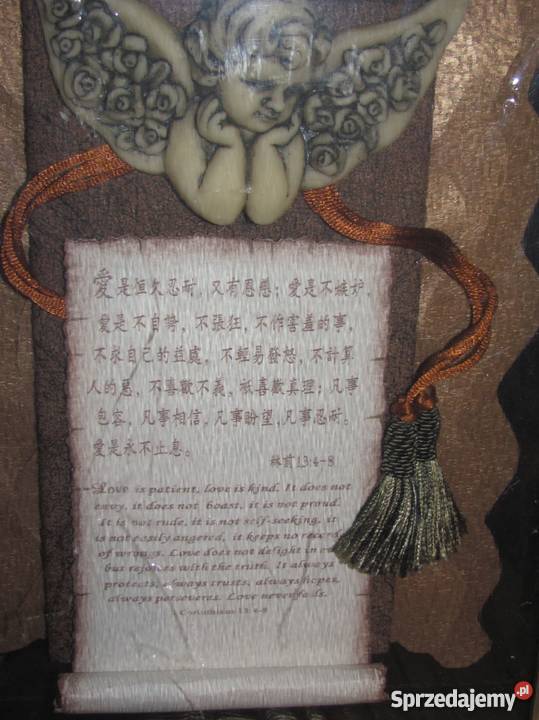 愛是恒久忍耐，又有恩慈；愛是不嫉妒，
愛是不自誇，不張狂，不作害羞的事，
不求自己的益處，不輕易發怒，不計算
人的惡，不喜歡不義，祇喜歡真理；凡事
包容，凡事相信，凡事盼望，凡事忍耐。
愛是永不止息。
林前13:4-8
Love is patient, love is kind. It does not
envy, it does not boast, it is not proud.
It is not rude, it is not self-seeking, it
is not easily angered, it keeps no record
of wrongs. Love does not delight in
but rejoices with the truth. It always
protects, always trusts, always hopes,
always perseveres. Love never fails.
Corinthians 13:4-8
Sprzedajemy.pl